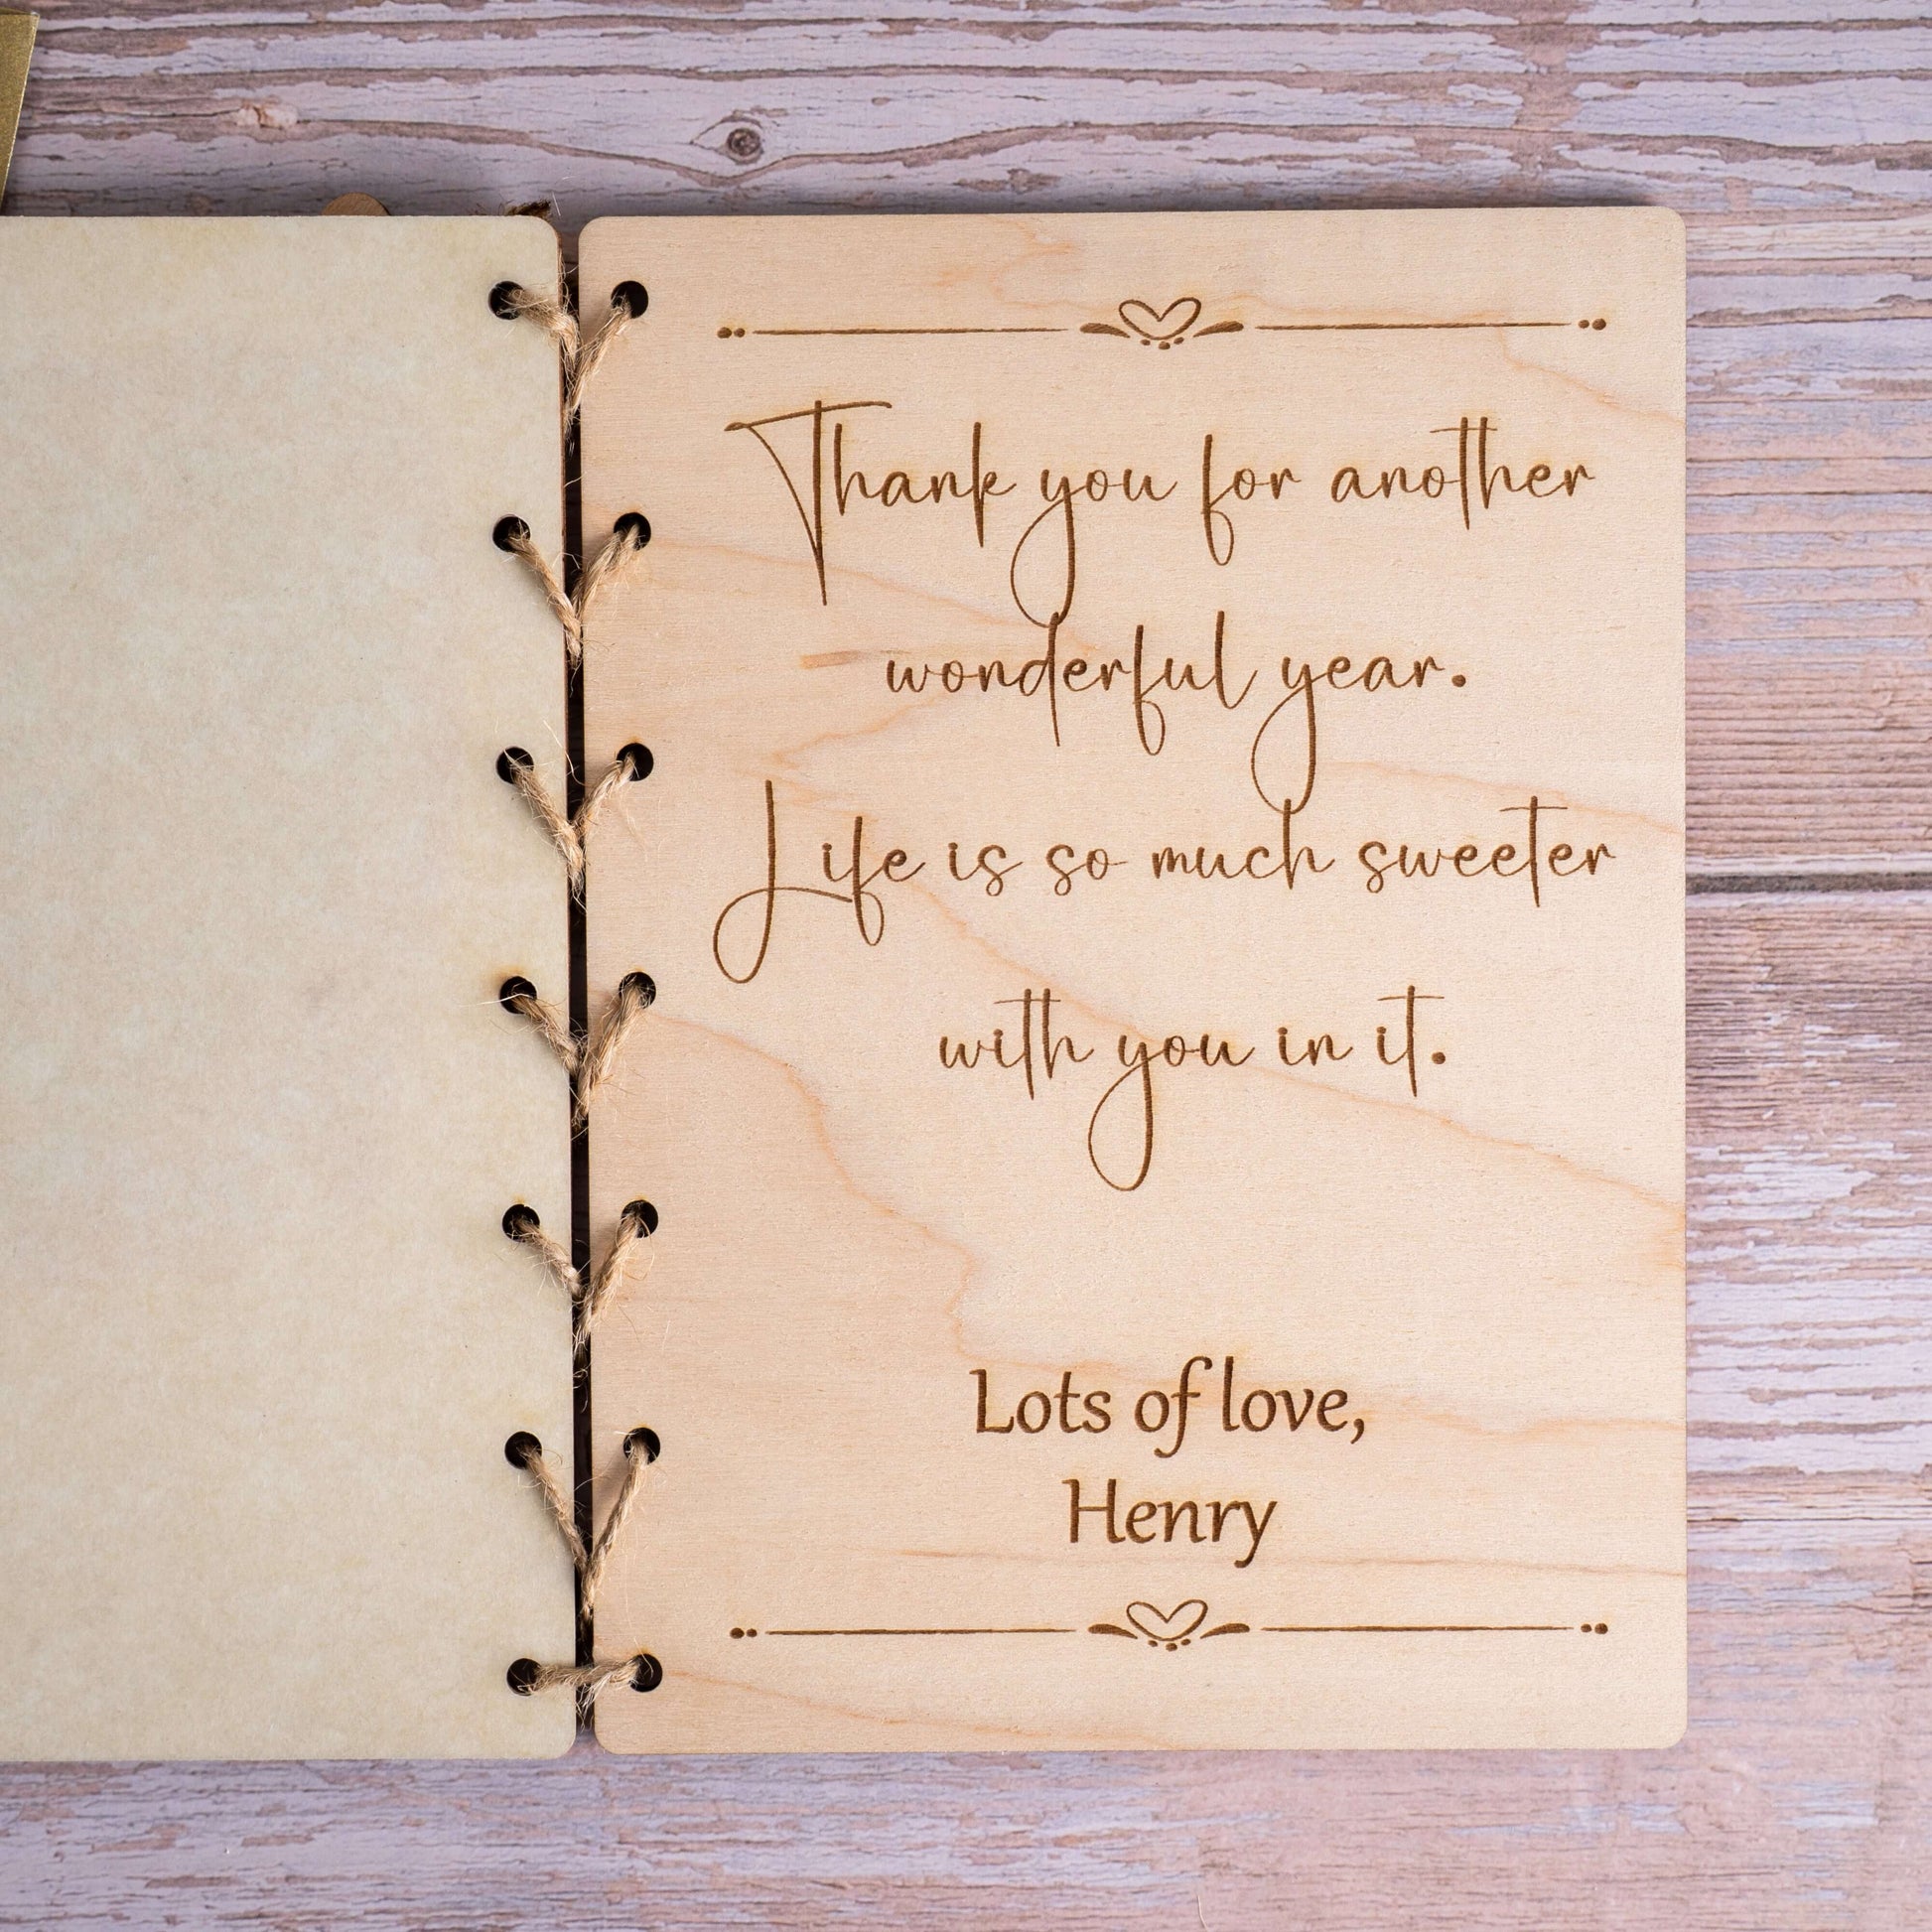 Thank you for another
wonderful year.
Life is so much sweeter
with you in it.
Lots of love,
Henry